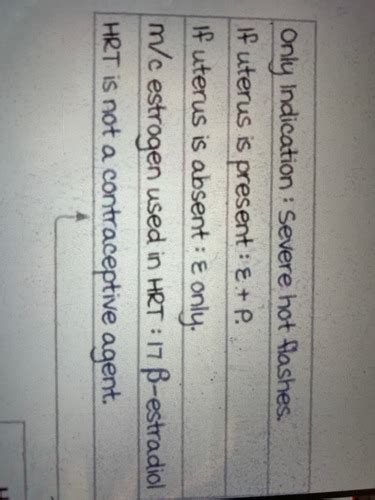 Only Indication : Severe hot flashes.
If uterus is present : E + P.
If uterus is absent : E only.
m/c estrogen used in HRT : 17 β-estradiol
HRT is not a contraceptive agent.